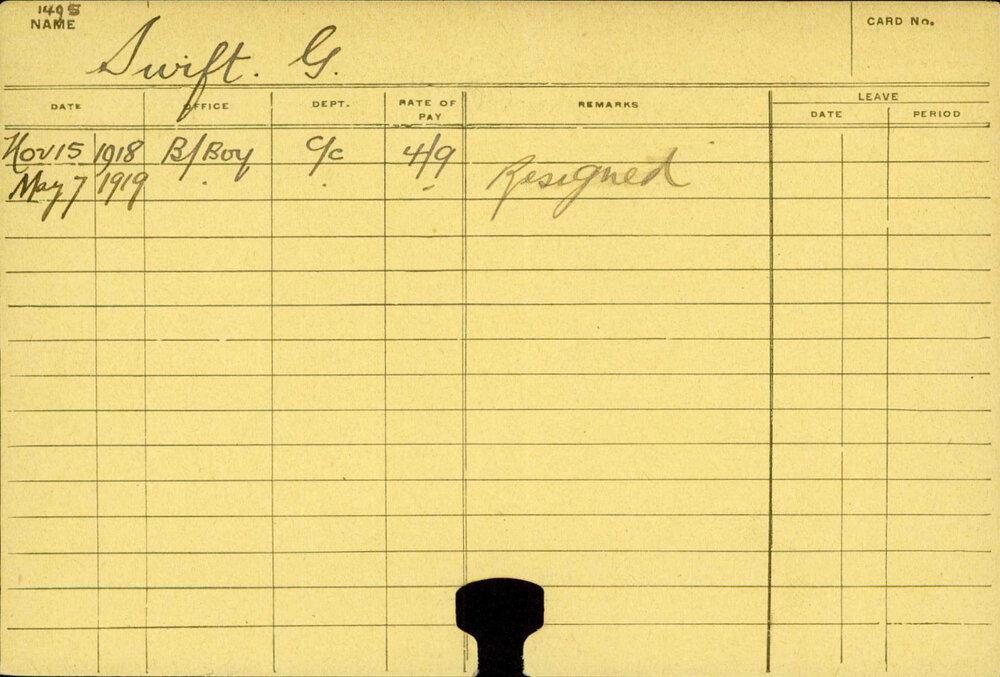 1495
NAME Swift. G. CARD No.
DATE OFFICE DEPT. RATE OF PAY REMARKS LEAVE
DATE PERIOD
Nov 15 1918 B/Boy C/c 4/9
May 7 1919 Resigned